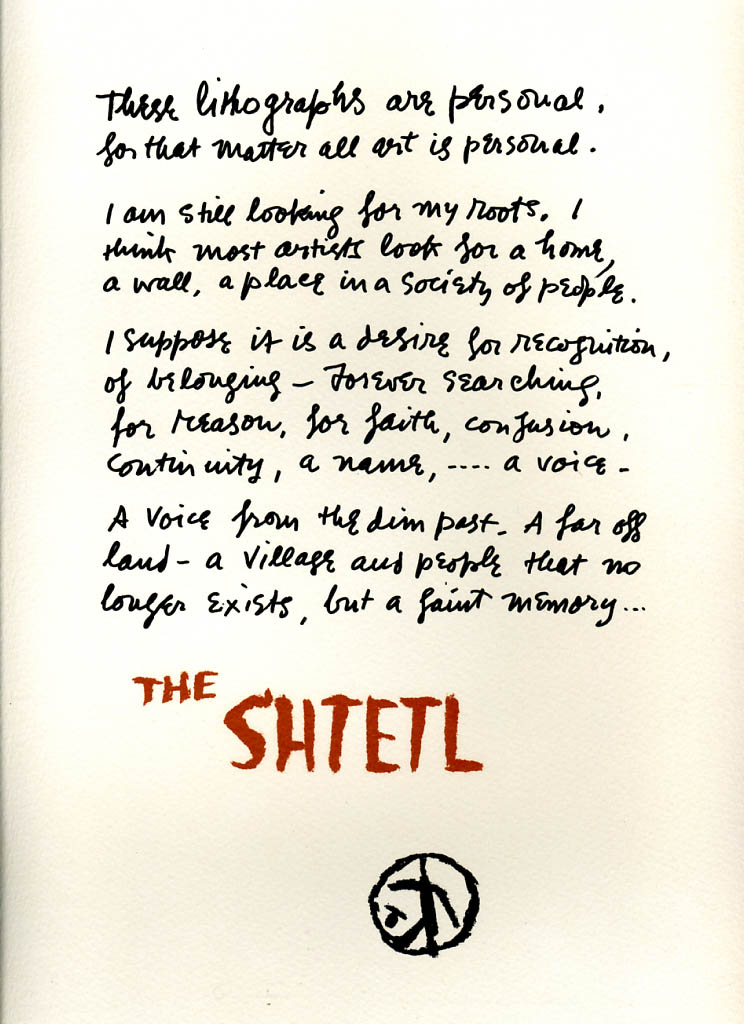 These lithographs are personal,
for that matter all art is personal.
I am still looking for my roots. I
think most artists look for a home,
a wall, a place in a society of people.
I suppose it is a desire for recognition,
of belonging – Forever searching,
for reason, for faith, confusion,
continuity, a name, .... a voice –
A voice from the dim past. A far off
land – a village and people that no
longer exists, but a faint memory...
THE
SHTETL